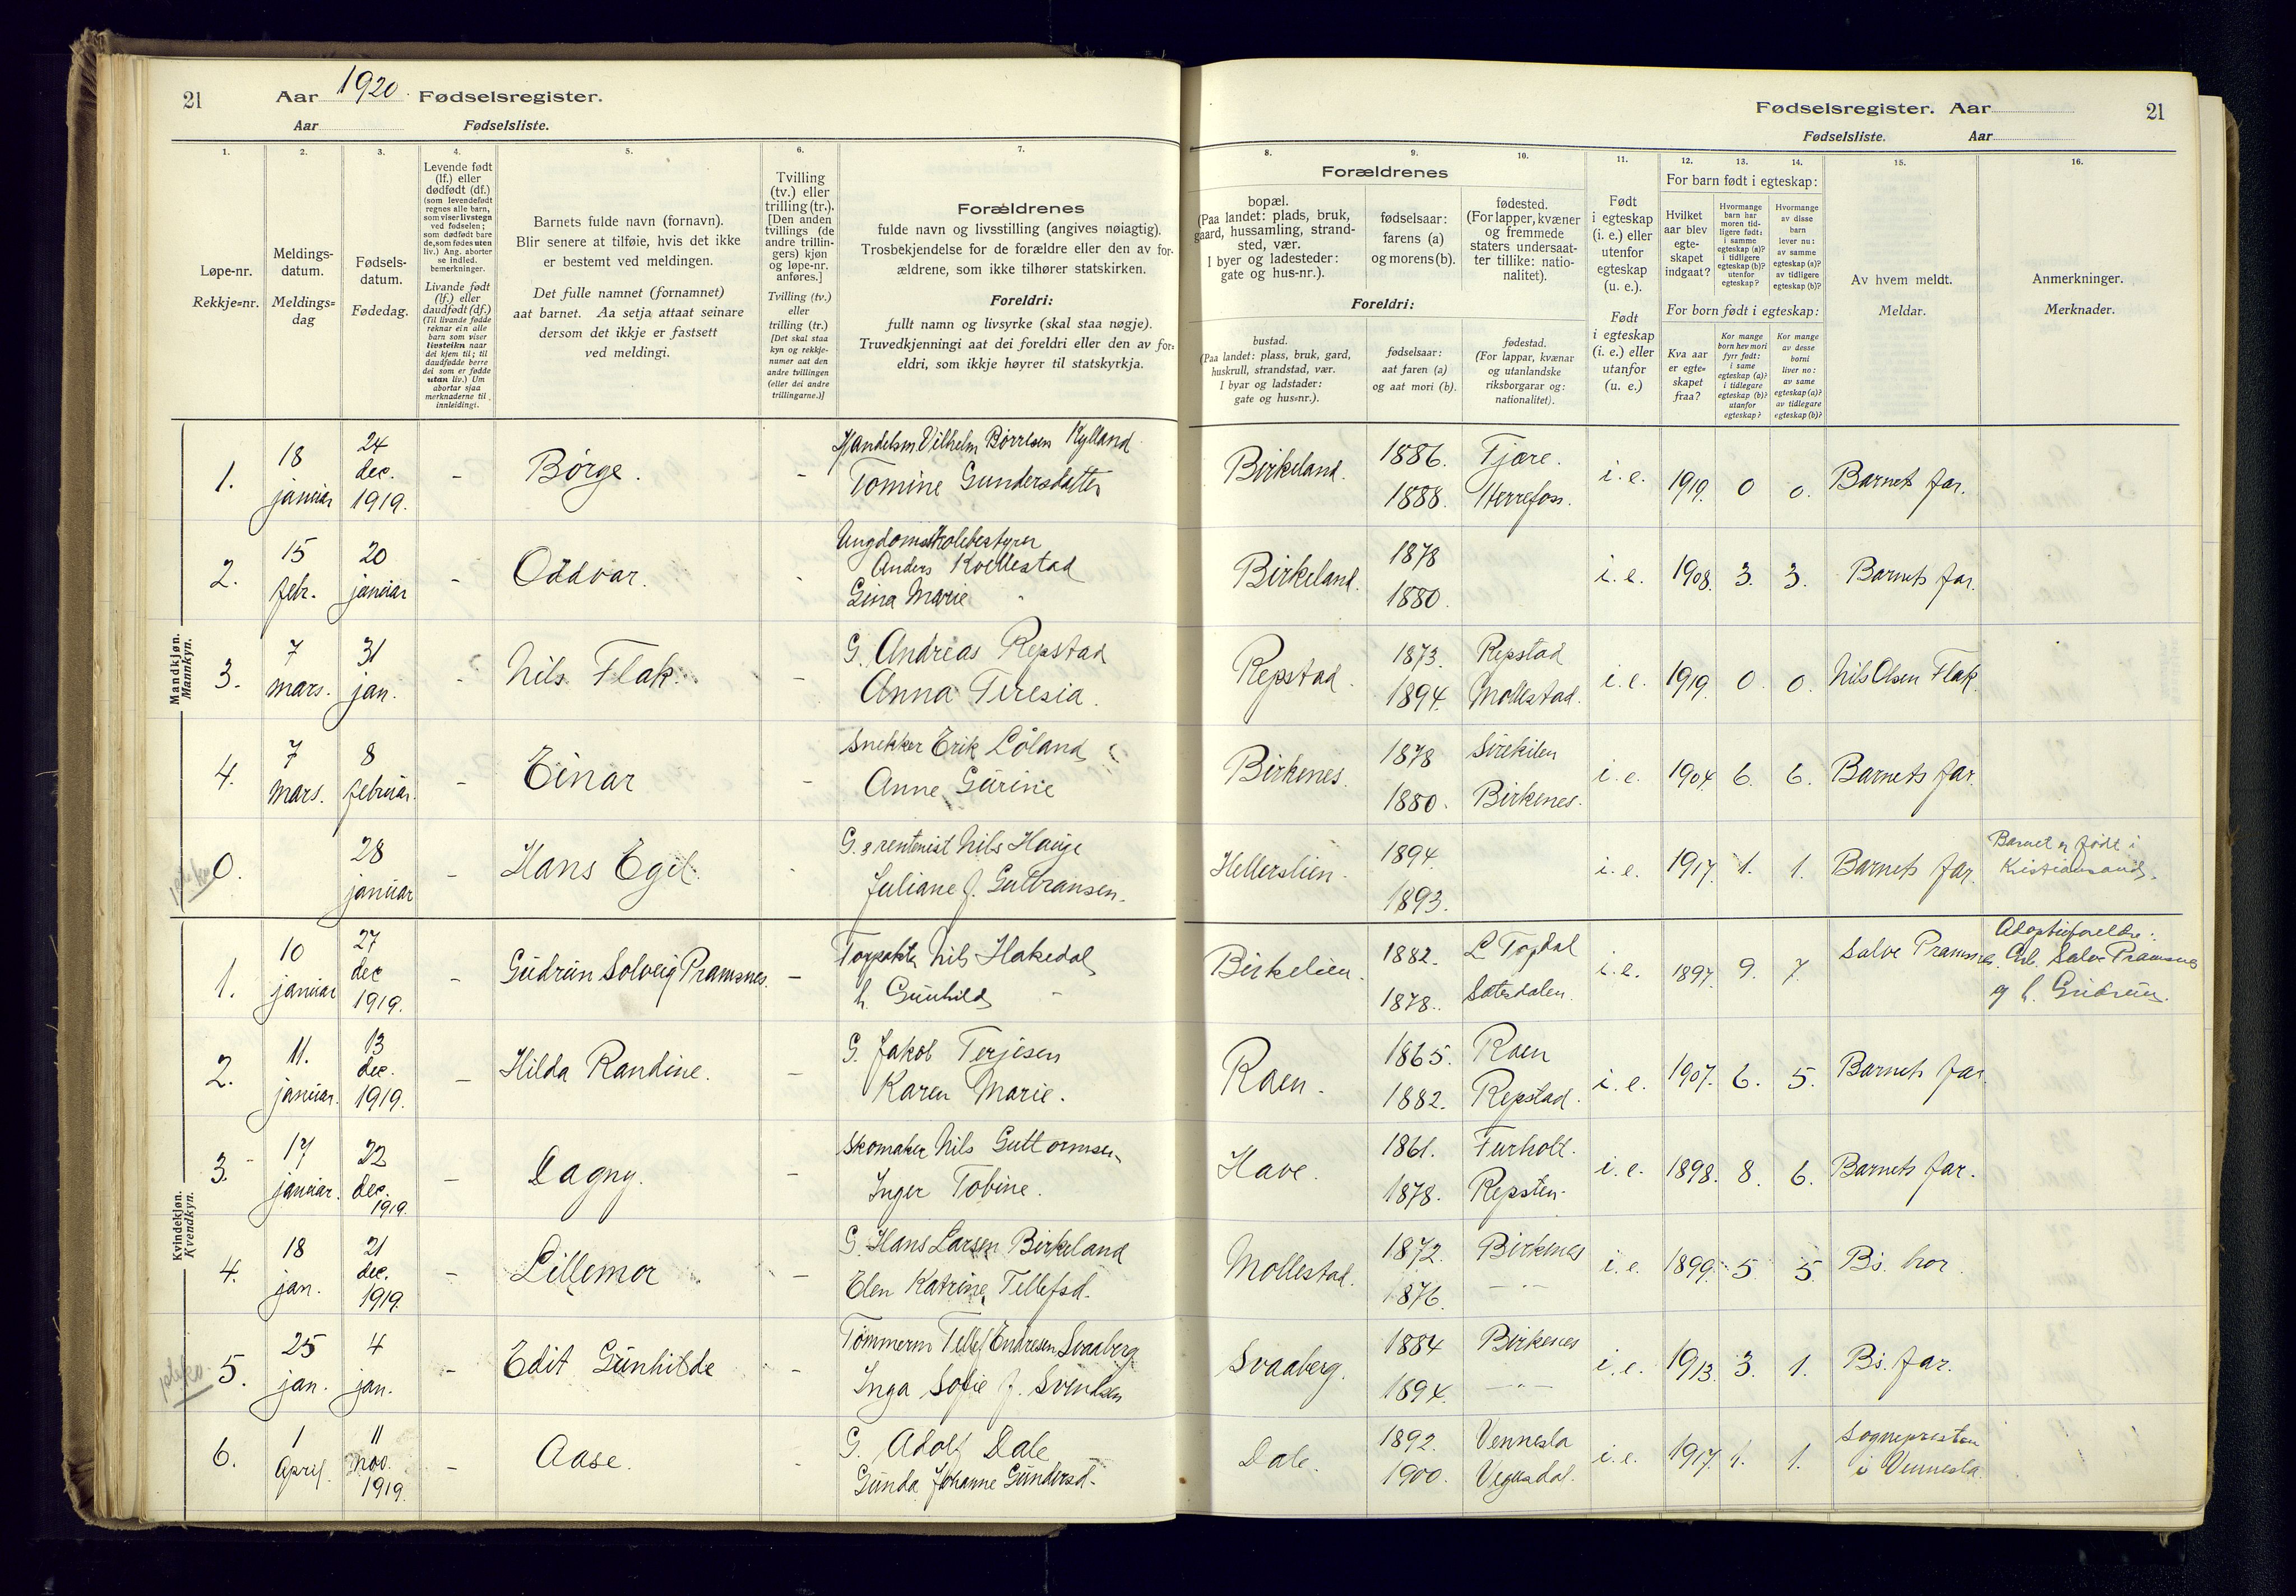 21 Aar 1920. Fødselsregister.
Aar Fødselsliste.
1.
Løpe-nr.
Rekkje=nr.
2.
Meldings-
datum.
Meldings=
dag
3.
Fødsels-
datum.
Fødedag.
4.
Levende født
(lf.) eller
dødfødt (df.)
(som levendefødt
regnes alle barn,
som viser livstegn
ved fødselen;
som dødfødt bare
de, som fødes uten
liv.) Ang. aborter
se indled.
bemerkninger.
Livande født
(lf.) eller
daudfødt (df.)
(Til livande fødde
reknar ein alle
barn som viser
livsteikn naar
dei kjem til; til
daudfødde berre
dei som er fødde
utan liv.) Um
abortar sjaa
merknaderne til
innleidingi.
5.
Barnets fulde navn (fornavn).
Blir senere at tilføie, hvis det ikke
er bestemt ved meldingen.
Det fulle namnet (fornamnet)
aat barnet. Aa setja attaat seinare
dersom det ikkje er fastsett
ved meldingi.
6.
Tvilling
(tv.) eller
trilling (tr.).
[Den anden
tvillings (de
andre trillin-
gers) kjøn
og løpe-nr.
anføres.]
Tvilling (tv.)
eller
trilling (tr.)
[Det skal staa
kyn og rekkje-
numer aat den
andre tvillingen
(eller dei andre
trillingarne.)]
7.
Forældrenes
fulde navn og livsstilling (angives nøiagtig).
Trosbekjendelse for de forældre eller den av for-
ældrene, som ikke tilhører statskirken.
Foreldri:
fullt namn og livsyrke (skal staa nøgje).
Truvedkjenningi aat dei foreldri eller den av for=
eldri, som ikkje høyrer til statskyrkja.
Mandkjøn.
Mannkyn.
1. 18 januar 24 dec. 1919. - Børge. - Handelsm. Vilhelm Børresen Kylland
Tomine Gundersdatter
2. 15 febr. 20 januar - Oddvar. - Ungdomsskolebestyrer
Anders Kvellestad
Gina Marie
3. 7 mars. 31 jan. - Nils Flak. - G. Andreas Repstad
Anna Teresia.
4. 7 mars. 8 februar. - Einar - Snekker Erik Løland
Anne Gurine
0. 28 januar - Hans Egil - G. Nils Hauge
Juliane f. Gulbransen.
Kvindekjøn.
Kvendkyn.
1. 10 januar 27 dec 1919. - Gudrun Solveig Pramsnes. - Nils Hakedal
h. Gunhild
2. 11. januar. 13 dec. 1919. - Hilda Randine. - G. Jakob Terjesen
Karen Marie.
3. 17 januar. 22 dec. 1919. - Dagny. - Skomaker Nils Guttormsen
Inger Tobine.
4. 18 jan. 21 dec. 1919. - Lillemor - G. Hans Larsen Birkeland
Elen Katrine Tellefsd.
5. 25 jan. 4 jan. - Edit Gunhilde - Tømmerm Tellef Endresen Svaaberg
Inga Sofie f. Svendsen
6. 1 April. 11 nov. 1919. - Aase. - G. Adolf Dale
Gunda Johanne Gundersd.
Fødselsregister. Aar 21
Fødselsliste. Aar
Forældrenes
8.
bopæl.
(Paa landet: plads, bruk,
gaard, hussamling, strand-
sted, vær.
I byer og ladesteder:
gate og hus-nr.).
9.
fødselsaar:
farens (a)
og morens (b).
10.
fødested.
(For lapper, kvæner
og fremmede
staters undersaat-
ter tillike: natio-
nalitet).
Foreldri:
bustad.
(Paa landet: plass, bruk, gard,
huskrull, strandstad, vær.
I byar og ladstader:
gate og hus=nr.).
fødselsaar:
aat faren (a)
og aat mori (b).
fødestad.
(For lappar, kvænar
og utanlandske
riksborgarar og:
nationalitet).
11.
Født
i egteskap
(i. e.) eller
utenfor
egteskap
(u. e.).
Født
i egteskap
(i. e.) eller
utanfor
(u. e.)
12. 13. 14.
For barn født i egteskap:
Hvilket
aar blev
egte-
skapet
indgaat?
Hvormange
barn har
moren tid-
ligere født:
i samme
egteskap (a)?
i tidligere
egteskap (b)?
utenfor
egteskap?
Hvormange
av disse
barn
lever nu:
av samme
egteskap (a)?
av tidligere
egteskap (b)?
For born født i egteskap:
Kva aar
er egte=
skapet
fraa?
Kor mange
born hev mori
fyrr født:
i same
egteskap (a)?
i tidlegare
egteskap (b)?
utanfor
egteskap?
Kor mange
av desse
borni
liver no:
av same
egteskap (a)?
av tidlegare
egteskap (b)?
15.
Av hvem meldt.
Meldar.
16.
Anmerkninger.
Merknader.
Birkeland. 1886. Fjære. i. e. 1919. 0 0. Barnets far.
1888. Herrefoss.
Birkeland. 1878 i. e. 1908. 3. 3. Barnets far.
1880.
Repstad. 1873. Repstad i. e. 1919. 0. 0. Nils Olsen Flak.
1894. Mollestad.
Birkenes. 1878 i. e. 1904 6. 6. Barnets far.
1880. Birkenes.
1894. i. e. 1917. 1. 1. Barnets far. Barnet er født i
1893. Kristiansand.
Birkelien. 1882. Topdal i. e. 1897. 9. 7. Salve Pramsnes. Adoptivforeldre:
1878. Sætesdalen. Arb. Salve Pramsnes
og h. Gudrun.
Raen. 1865. Raen i. e. 1907. 6. 5. Barnets far
1882. Repstad.
Have. 1861. Furholt. i. e. 1898. 8. 6. Barnets far.
1878. Repsten.
Mollestad. 1872. Birkenes i. e. 1899. 5 5 Bs. mor
1876. - " -
Svaaberg. 1884 Birkenes i. e. 1913. 3. 1. Bs. far.
1894. - " -
Dale. 1892. Vennesla i. e. 1917. 1. 1. Sognepresten
1900. Vegusdal. i Vennesla